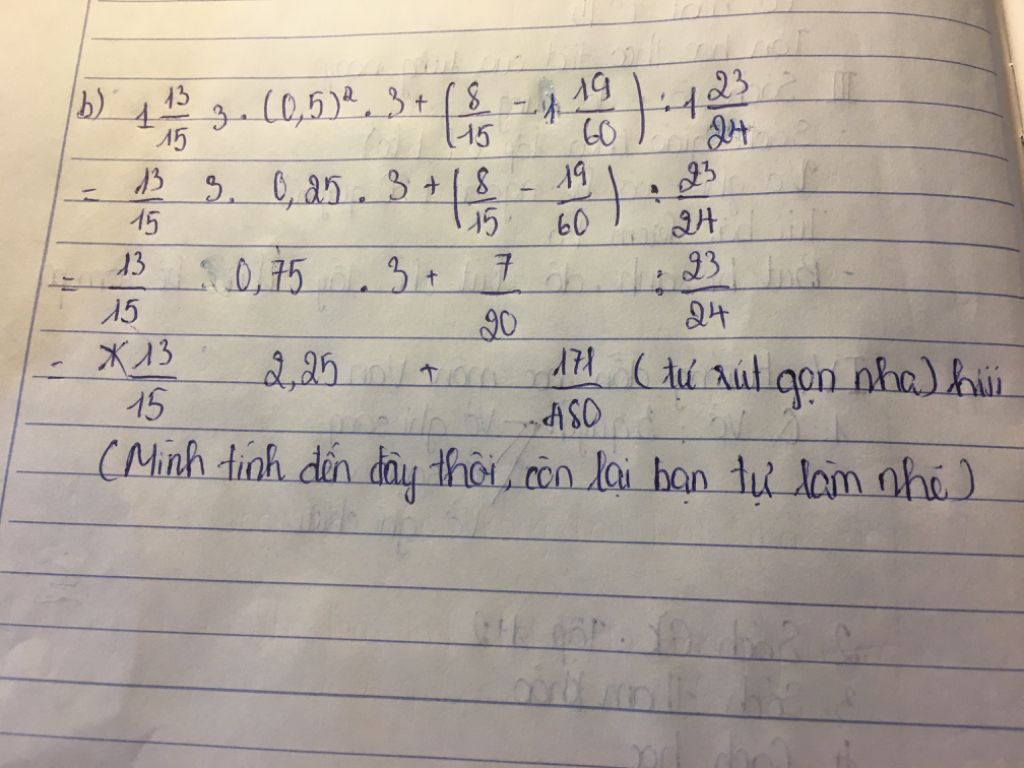 b) 1 13/15 3 . (0,5)² . 3 + (8/15 - 1 19/60) : 1 23/24
= 13/15 3 . 0,25 . 3 + (8/15 - 19/60) : 23/24
= 13/15 . 0,75 . 3 + 7/20 : 23/24
= 13/15 2,25 + 171/480 (tự rút gọn nha) hiii
(Mình tính đến đây thôi, còn lại bạn tự làm nhé)